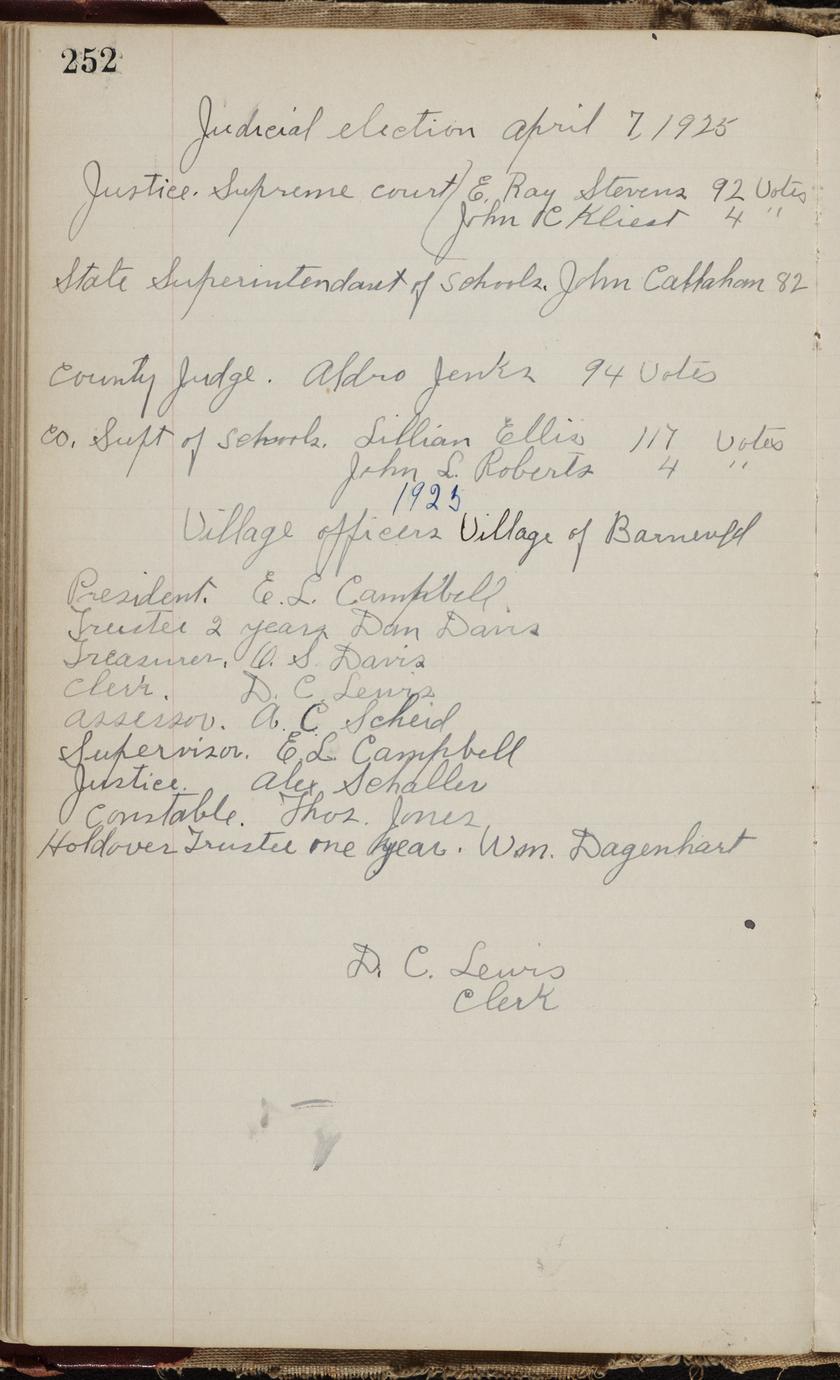 252
Judicial election april 7, 1925
Justice. Supreme court E. Ray Stevens 92 Votes
John C Kliest 4 "
State Superintendant of schools. John Callahan 82
County Judge. Aldro Jenks 94 Votes
Co. Supt of schools. Lillian Ellis 117 Votes
John L. Roberts 4 "
1925
Village officers Village of Barneveld
President. E. L. Campbell
Trustee 2 years Dan Davis
Treasurer. O. S. Davis
Clerk. D. C. Lewis
assessor. A. C Scheid
Supervisor. E. L. Campbell
Justice. Alex Schaller
Constable. Thos. Jones
Holdover Trustee one year. Wm. Dagenhart
D. C. Lewis
Clerk